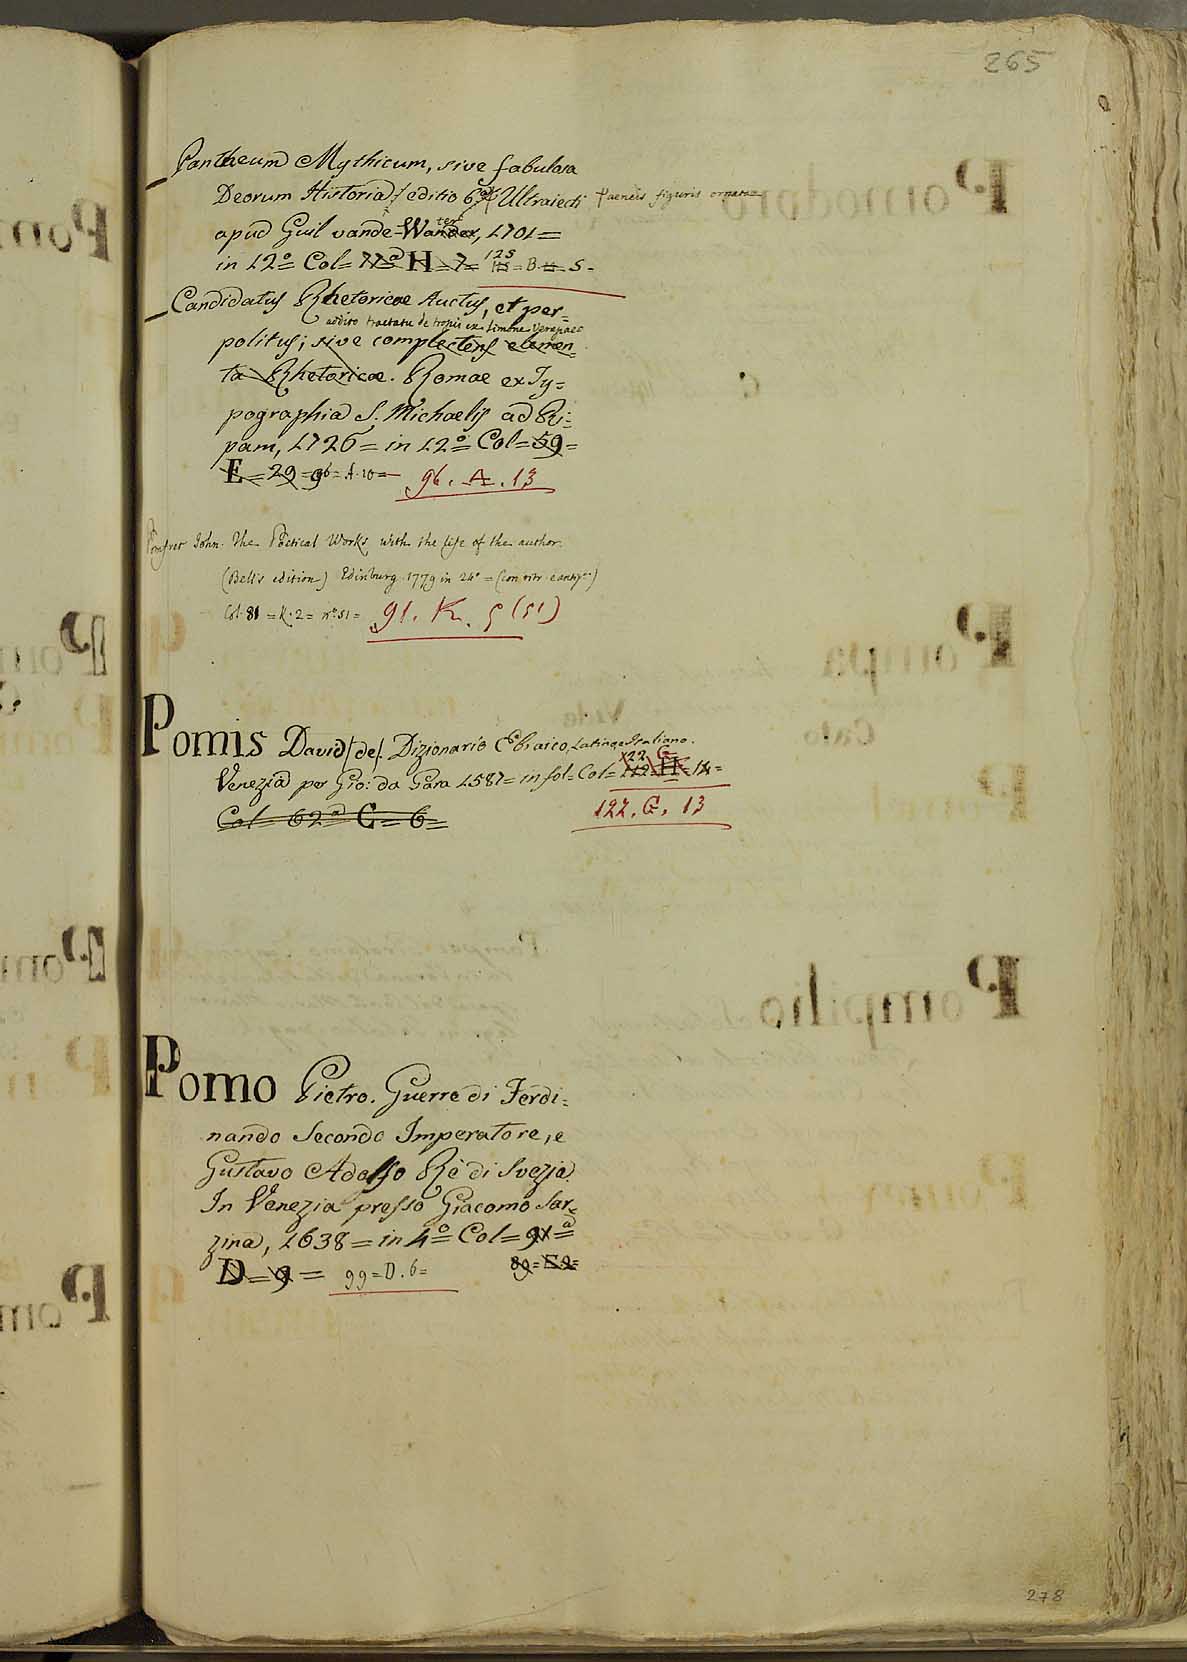 265
Pantheum Mythicum, sive fabulosa
Deorum Historia / editio 6ª Ultraiecti / aeneis figuris ornata
apud Guil vande-Water, 1701=
in 12º= Col= 77ª H=7= 125 = B = 5 -
Candidatus Rhetoricae Auctus, et per=
addito tractatu de tropis ex Simone Verepaeo
politus; sive complectens elemen=
ta Rhetoricae. Romae ex Ty=
pographia S. Michaelis ad Ri=
pam, 1726= in 12º= Col= 59=
E=29 96= A. 10= 96. A. 13
Pomfret John. The Poetical Works with the life of the author.
(Bell's edition) Edinburg. 1779 in 24º = (con ritr.
Col. 81 = K. 2= nº 51= 91. K. 5 (51)
Pomis David / de /. Dizionario Ebraico, Latino, e Italiano.
122 G
Venezia per Gio: da Gara 1587= in fol= Col= 112 H= 14=
Col= 62ª C= 6= 122. G. 13
Pomo Pietro. Guerre di Ferdi=
nando Secondo Imperatore, e
Gustavo Adolfo Rè di Svezia.
In Venezia presso Giacomo Sar=
zina, 1638= in 4º= Col= 91=ª
D=9= 99=D. 6= 89=
278